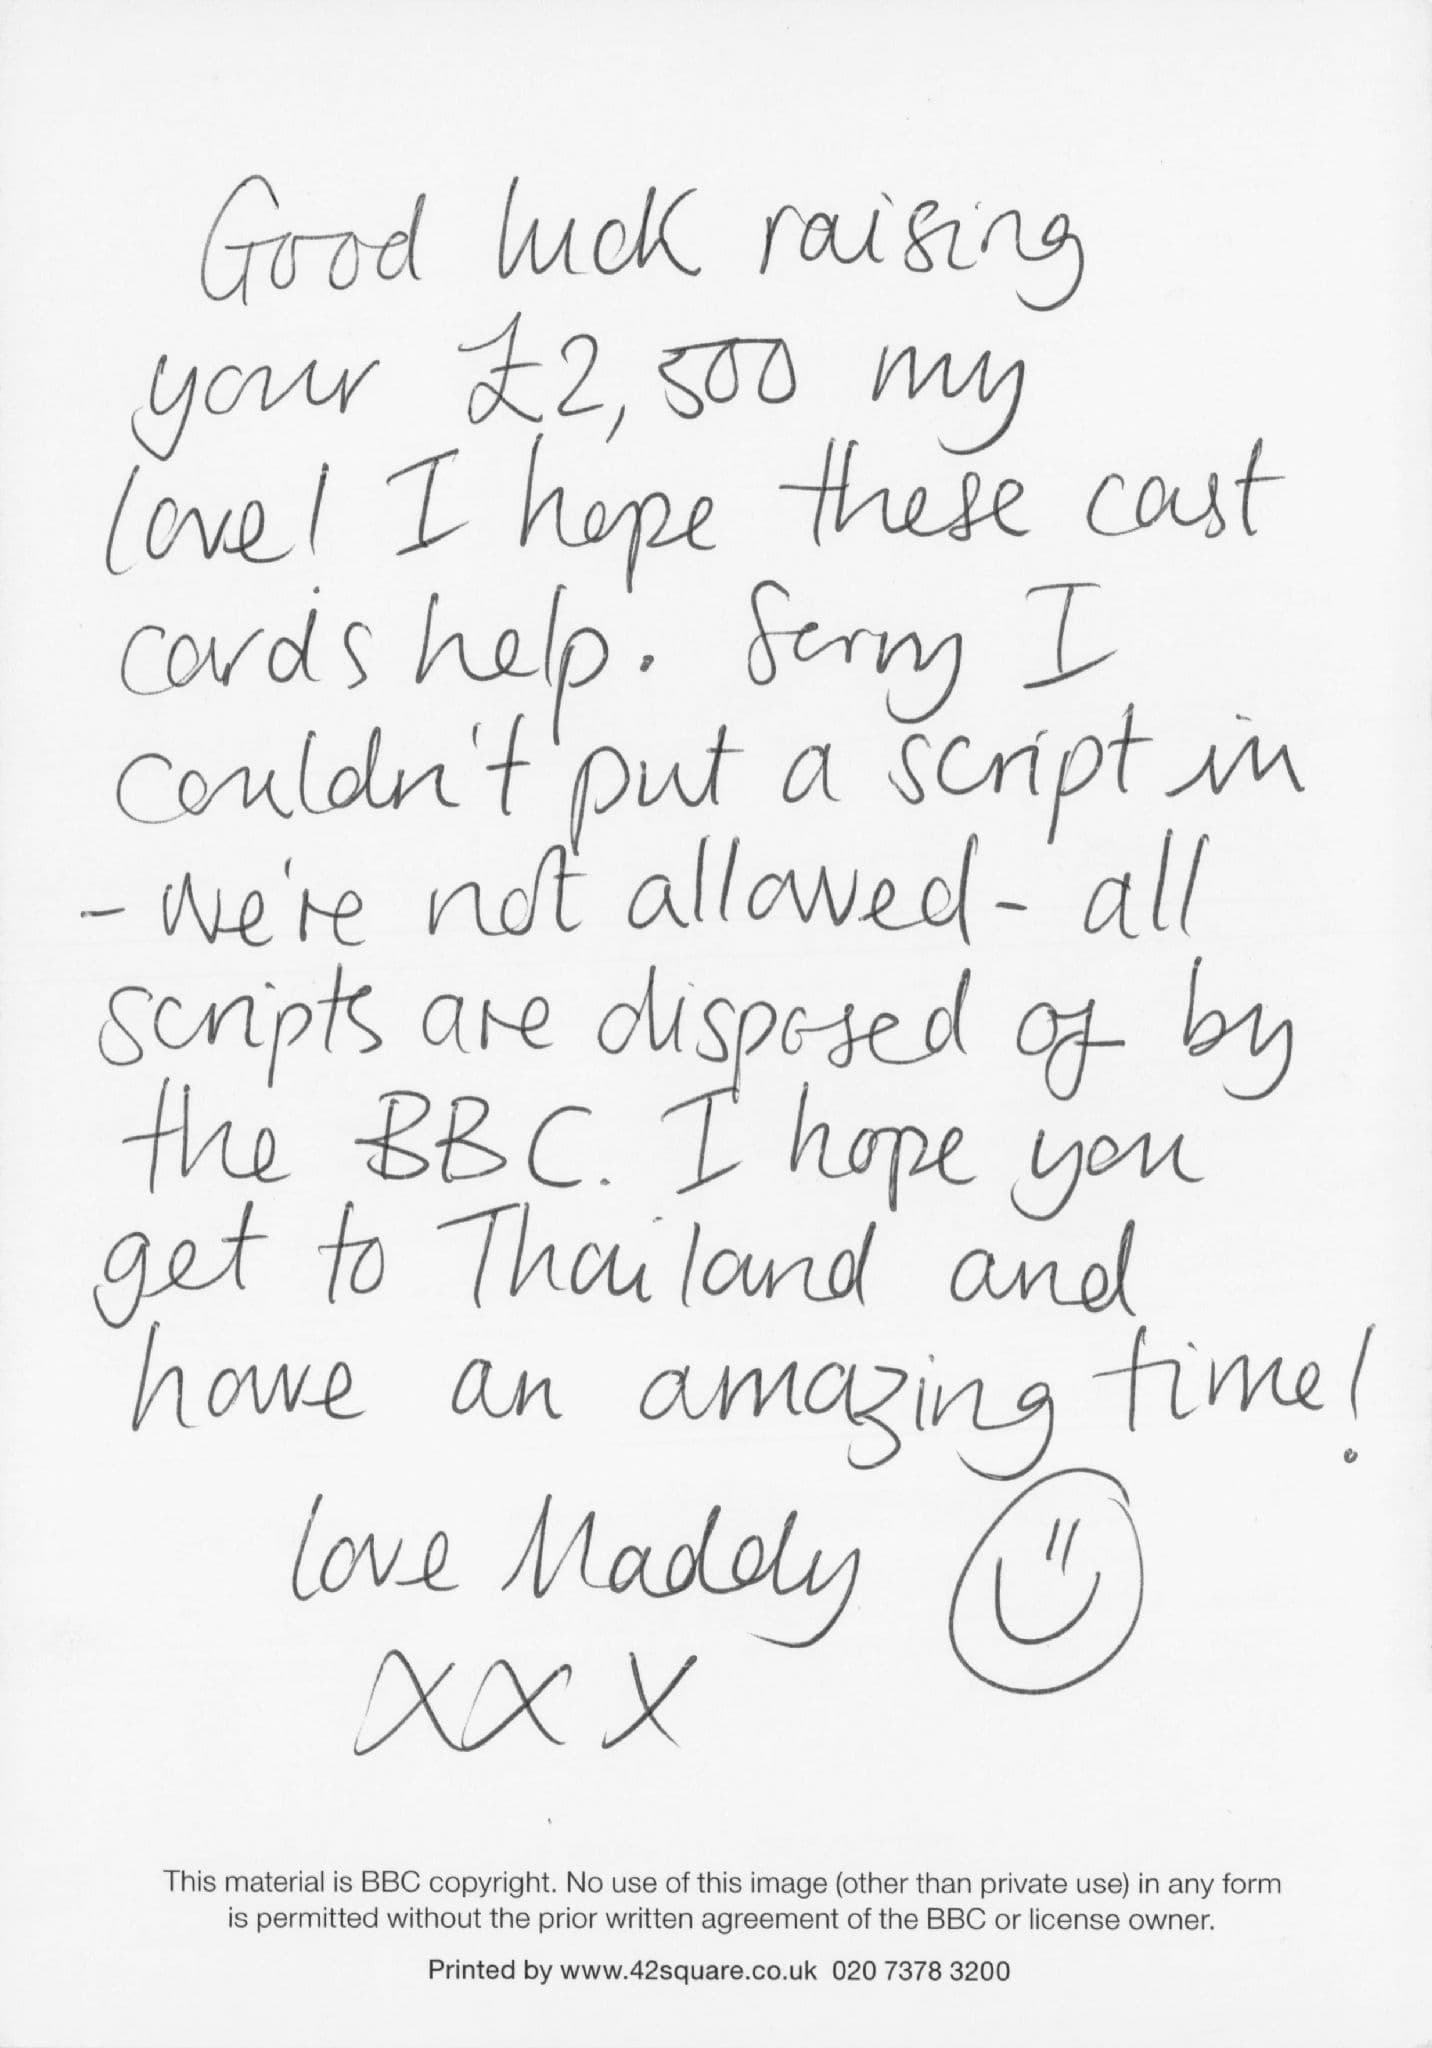 Good luck raising
your £2,500 my
love! I hope these cast
cards help. Sorry I
couldn't put a script in
- we're not allowed - all
scripts are disposed of by
the BBC. I hope you
get to Thailand and
have an amazing time!
love Maddy
xxx
This material is BBC copyright. No use of this image (other than private use) in any form
is permitted without the prior written agreement of the BBC or license owner.
Printed by www.42square.co.uk 020 7378 3200